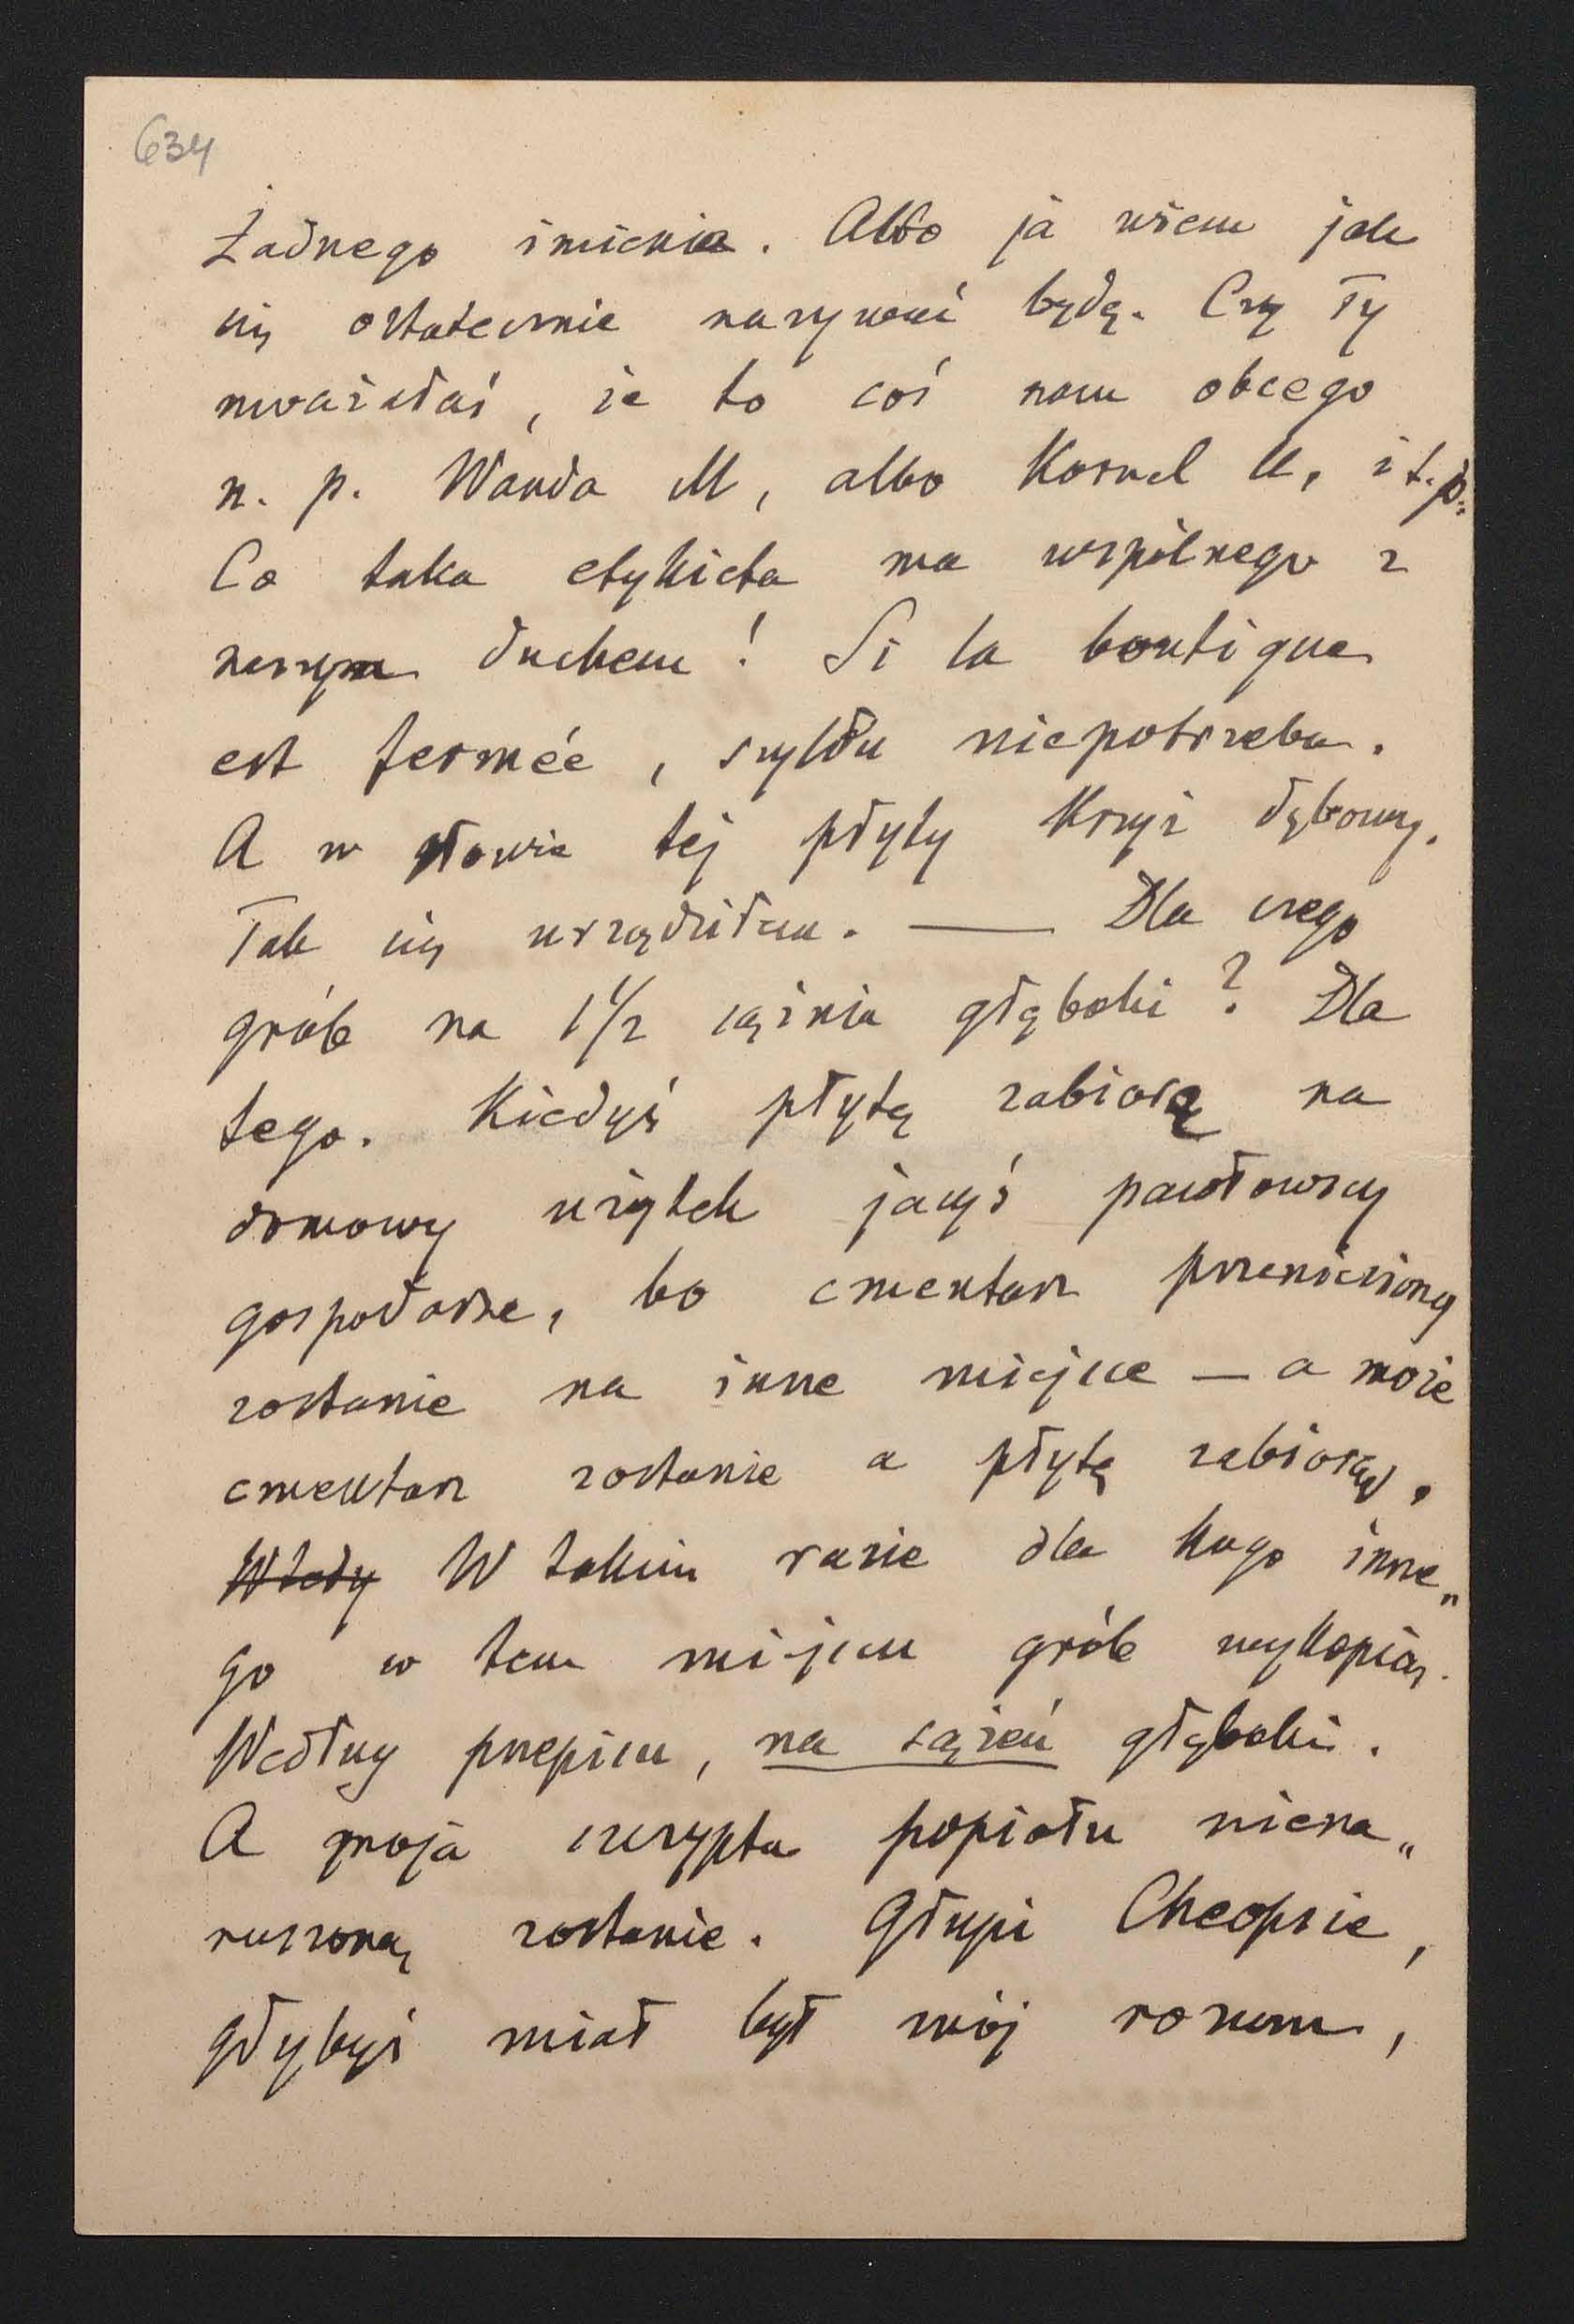 634
Żadnego imienia. Albo ja wiem jak
się ostatecznie nazywać będę. Czy Ty
uważałaś, że to coś nam obcego
n. p. Wanda M, albo Kornel U, i t. p.
Co taka etykieta ma wspólnego z
naszym duchem! Si la boutique
est fermée, szyldu niepotrzeba.
A w głowie tej płyty Krzyż dębowy.
Tak się urządziłem. — Dla czego
grób na 1 1/2 sążnia głęboki? Dla
tego. Kiedyś płytę zabiorą na
domowy użytek jacyś pawłowscy
gospodarze, bo cmentarz przeniesiony
zostanie na inne miejsce — a może
cmentarz zostanie a płytę zabiorą,
Wtedy W takim razie dla kogo inne„
go w tem miejscu grób wykopią.
Według przepisu, na sążeń głęboki.
A moja szczypta popiołu niena„
ruszoną zostanie. Głupi Cheopsie,
gdybyś miał był mój rozum,